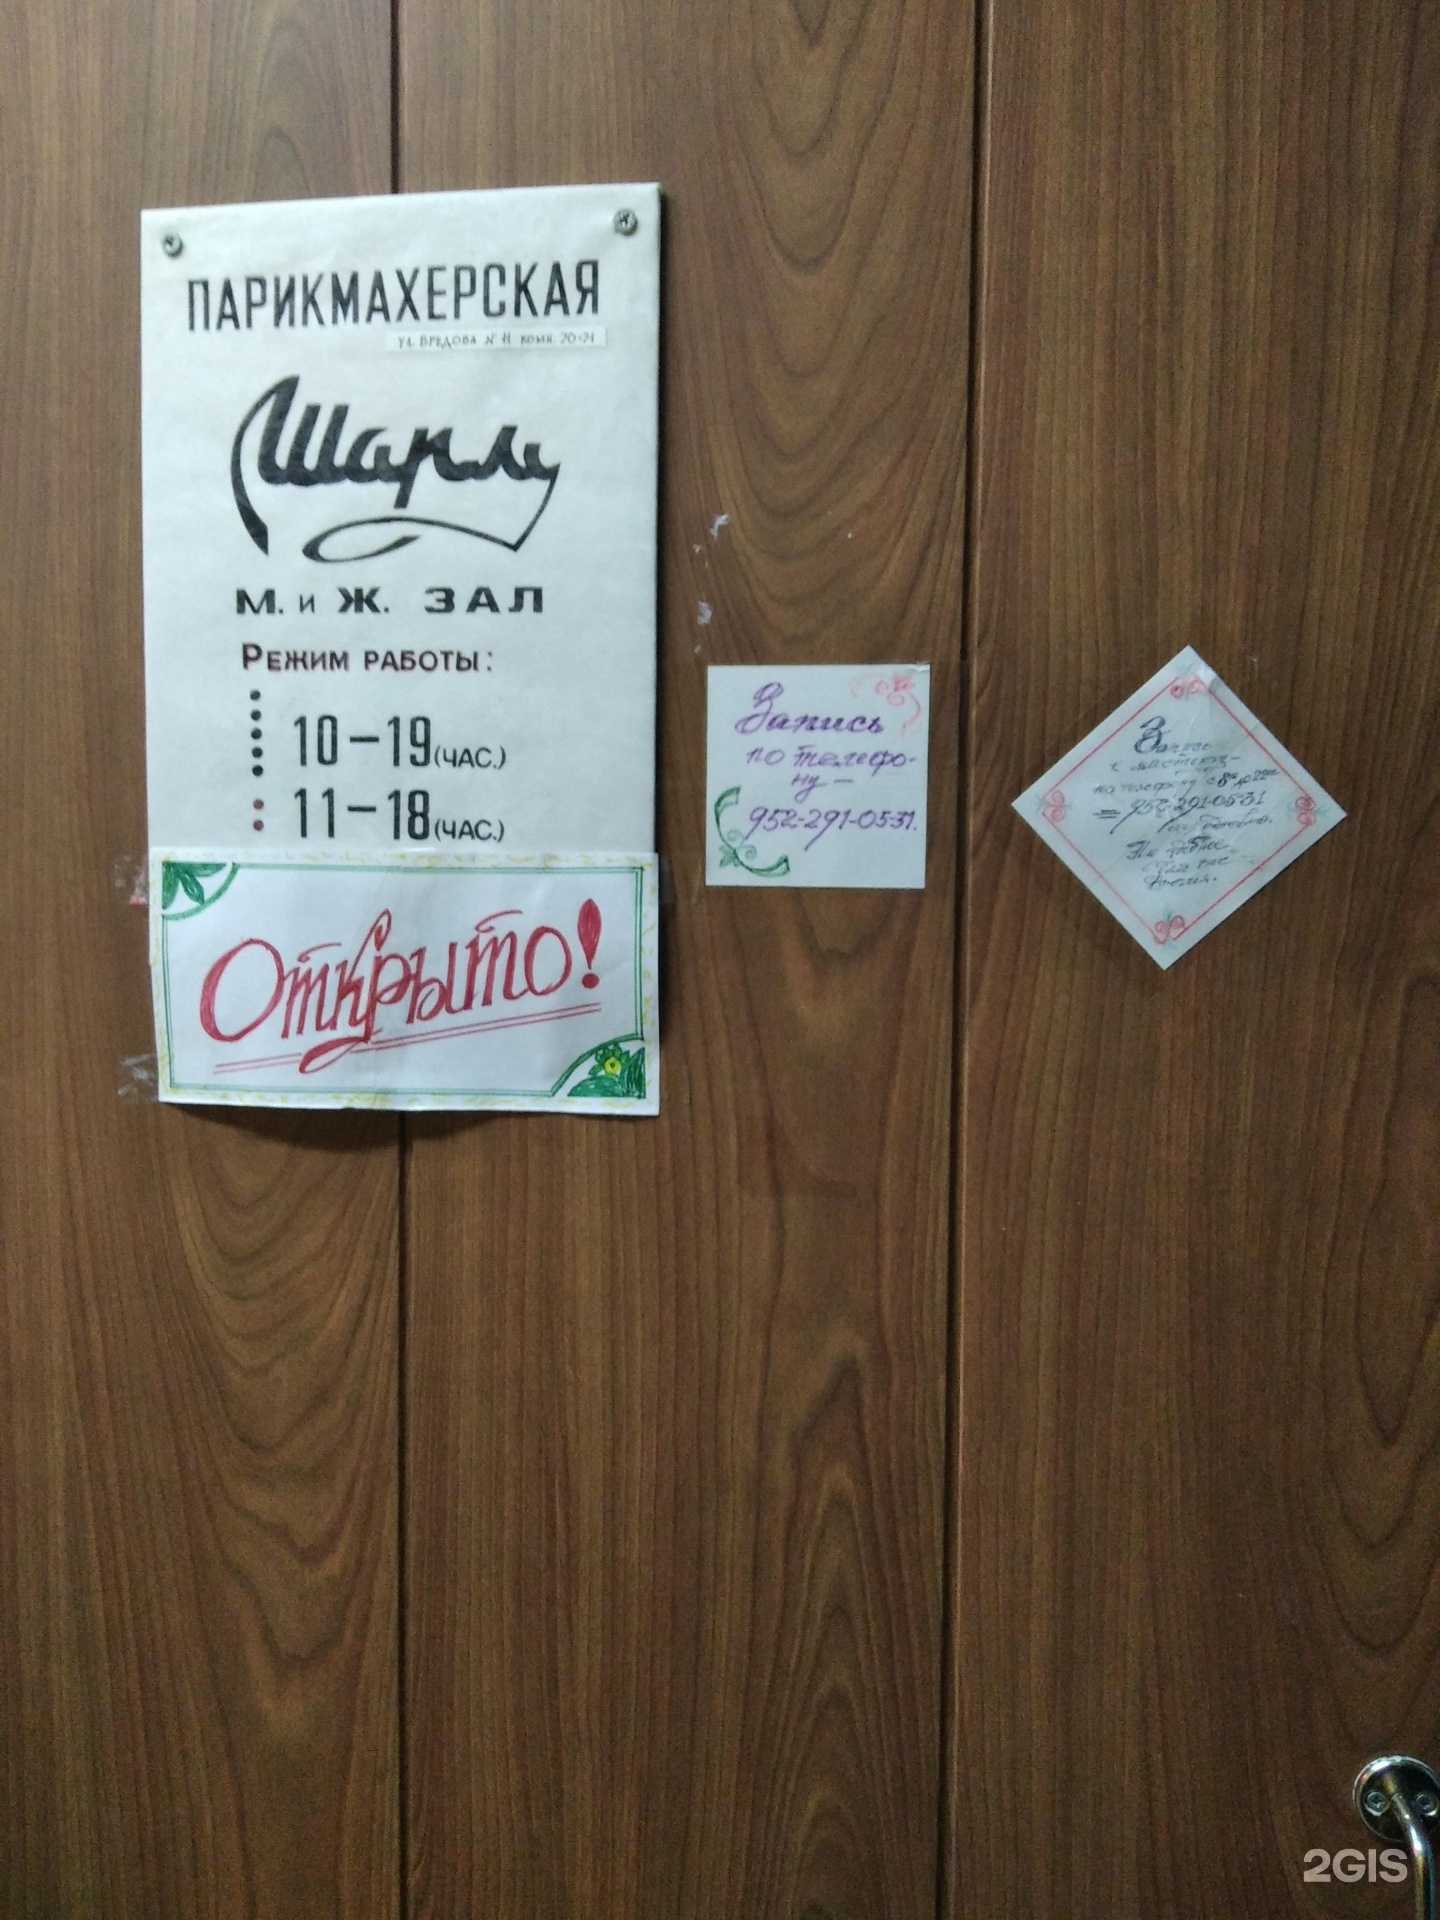 ПАРИКМАХЕРСКАЯ
ул. БРЕДОВА № 11 комн. 20-21
Шарм
М. и Ж. ЗАЛ
РЕЖИМ РАБОТЫ:
10-19 (ЧАС.)
11-18 (ЧАС.)
Открыто!
Запись
по телефо-
ну —
952-291-05-31.
Запись
к мастеру-
по телефону с 8⁰⁰ до 22⁰⁰
= 952-291-05-31
2GIS